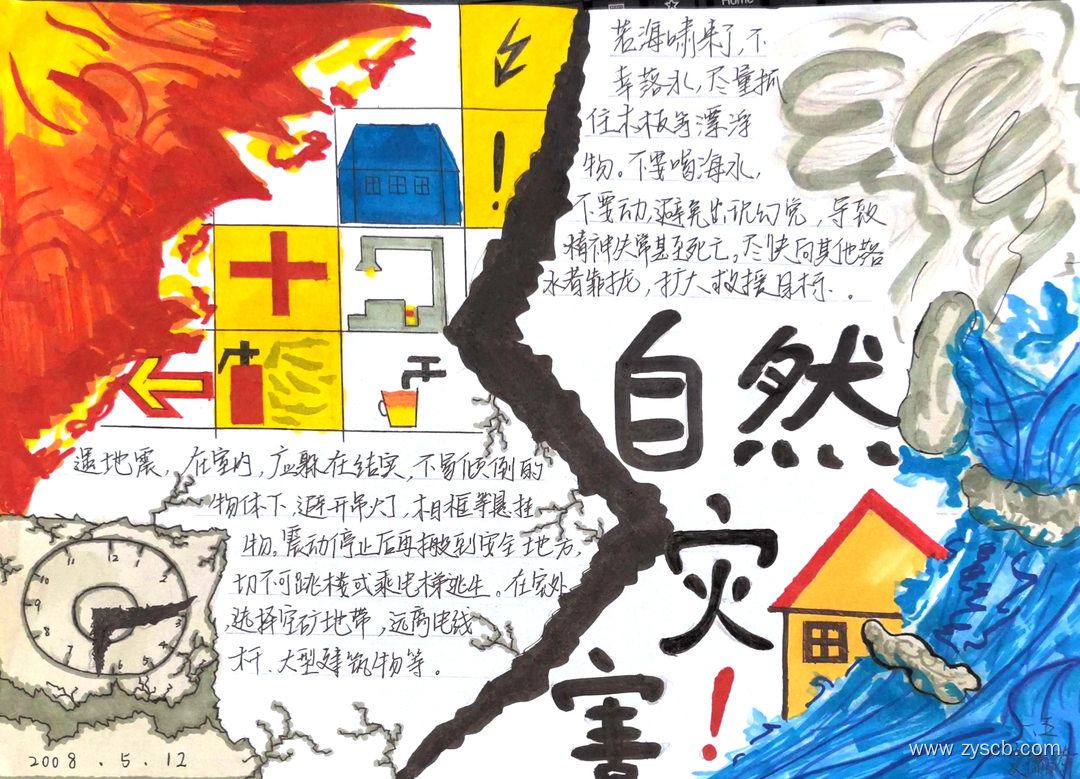 若海啸来了，不
幸落水，尽量抓
住木板等漂浮
物。不要喝海水，
不要动，避免出现幻觉，导致
精神失常甚至死亡。尽快向其他落
水者靠拢，扩大救援目标。
自然
灾
害！
遇地震，在室内，应躲在结实、不易倾倒的
物体下，避开吊灯、相框等悬挂
物。震动停止后再搬到安全地方，
切不可跳楼或乘电梯逃生。在室外
选择空旷地带，远离电线
杆、大型建筑物等。
12
1
2
3
2008.5.12
www.zyscb.com